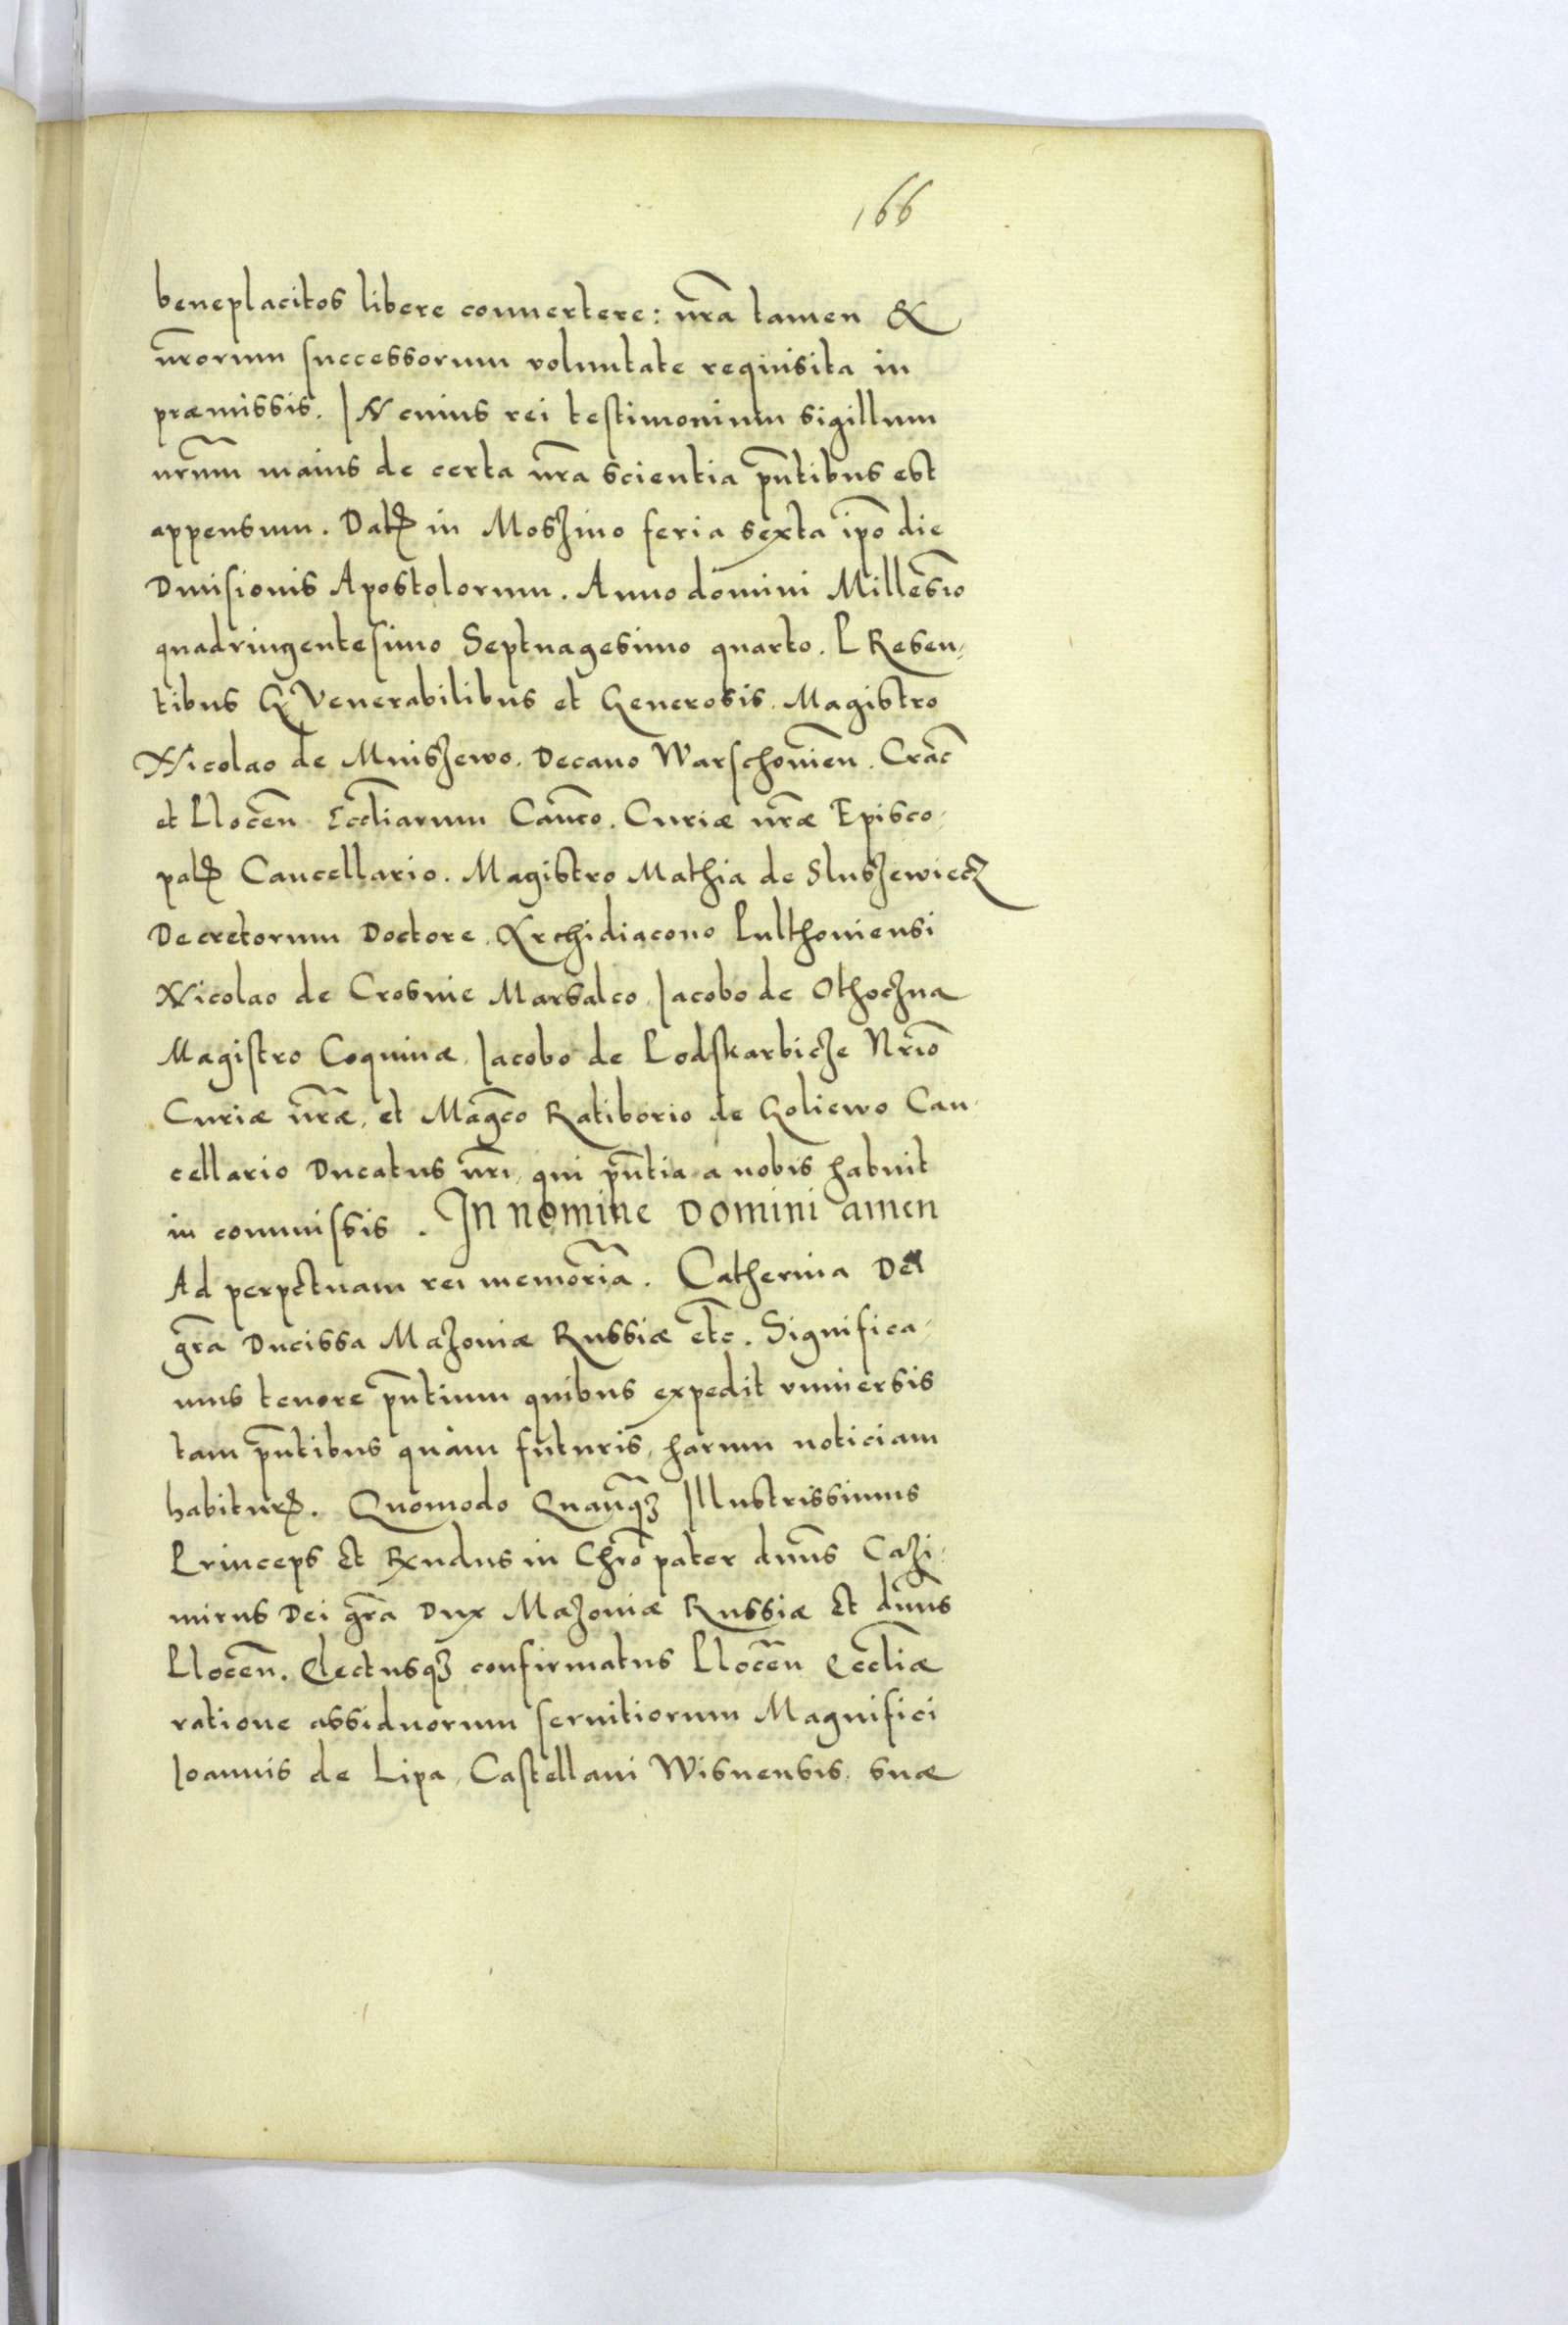 166
beneplacitos libere conuertere: nr̃a tamen &
nr̃orum successorum voluntate requisita in
præmissis. IN cuius rei testimonium sigillum
nr̃um maius de certa nr̃a scientia pñtibus est
appensum. Datꝭ in Moszino feria sexta ip̃o die
Diuisionis Apostolorum. Anno domini Millesĩo
quadringentesimo Septuagesimo quarto. PResen,
tibus Venerabilibus et Generosis. Magistro
Nicolao de Mniszewo. Decano Warschouieñ. Crac̃
et Ploceñ Eccl̃iarum Cañco. Curiæ nr̃æ Episco,
palꝭ Cancellario. Magistro Mathia de Sluszewiecz
Decretorum Doctore. Archidiacono Pulthouiensi
Nicolao de Crosnie Marsalco, Jacobo de Othoczna
Magistro Coquinæ, Jacobo de Podskarbicze Nr̃io
Curiæ nr̃æ, et Magc̃o Ratiborio de Goliewo Can,
cellario Ducatus nr̃i, qui pñtia a nobis habuit
in commissis. In nomine Domini amen
Ad perpetuam rei memor̃ia. Catherina Dei
gr̃a Ducissa Mazouiæ Russiæ etc̃. Significa,
mus tenore pñtium quibus expedit vniuersis
tam pñtibus quàm futuris, harum noticiam
habiturꝭ. Quomodo Quanq̃ꝫ Illustrissimus
Princeps et Rx̃ndus in Chr̃o pater dñus Cazi,
mirus Dei gr̃a Dux Mazouiæ Russiæ et dñus
Ploceñ. Electusqꝫ confirmatus Ploceñ Eccl̃iæ
ratione assiduorum seruitiorum Magnifici
Joannis de Lipa, Castellani Wisnensis, suæ